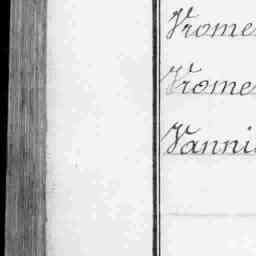 Vrome
Vrome
Vanni